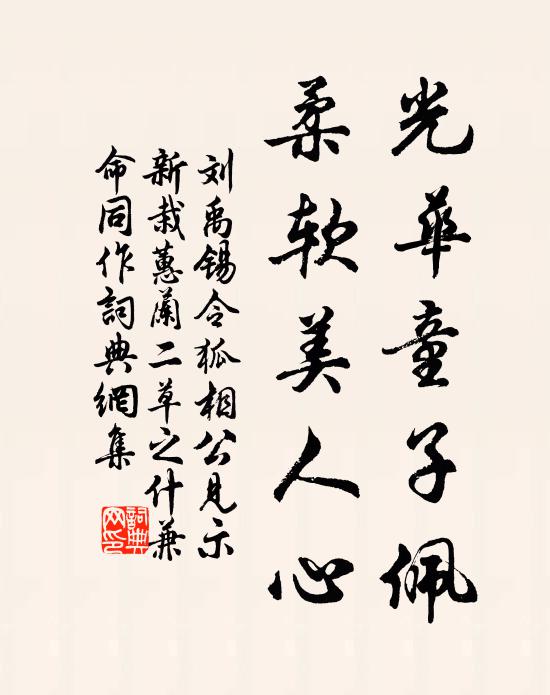 光华童子佩
柔软美人心
刘禹锡令狐相公见示
新栽蕙蘭二草之什兼
命同作詞典網集
詞典
网印